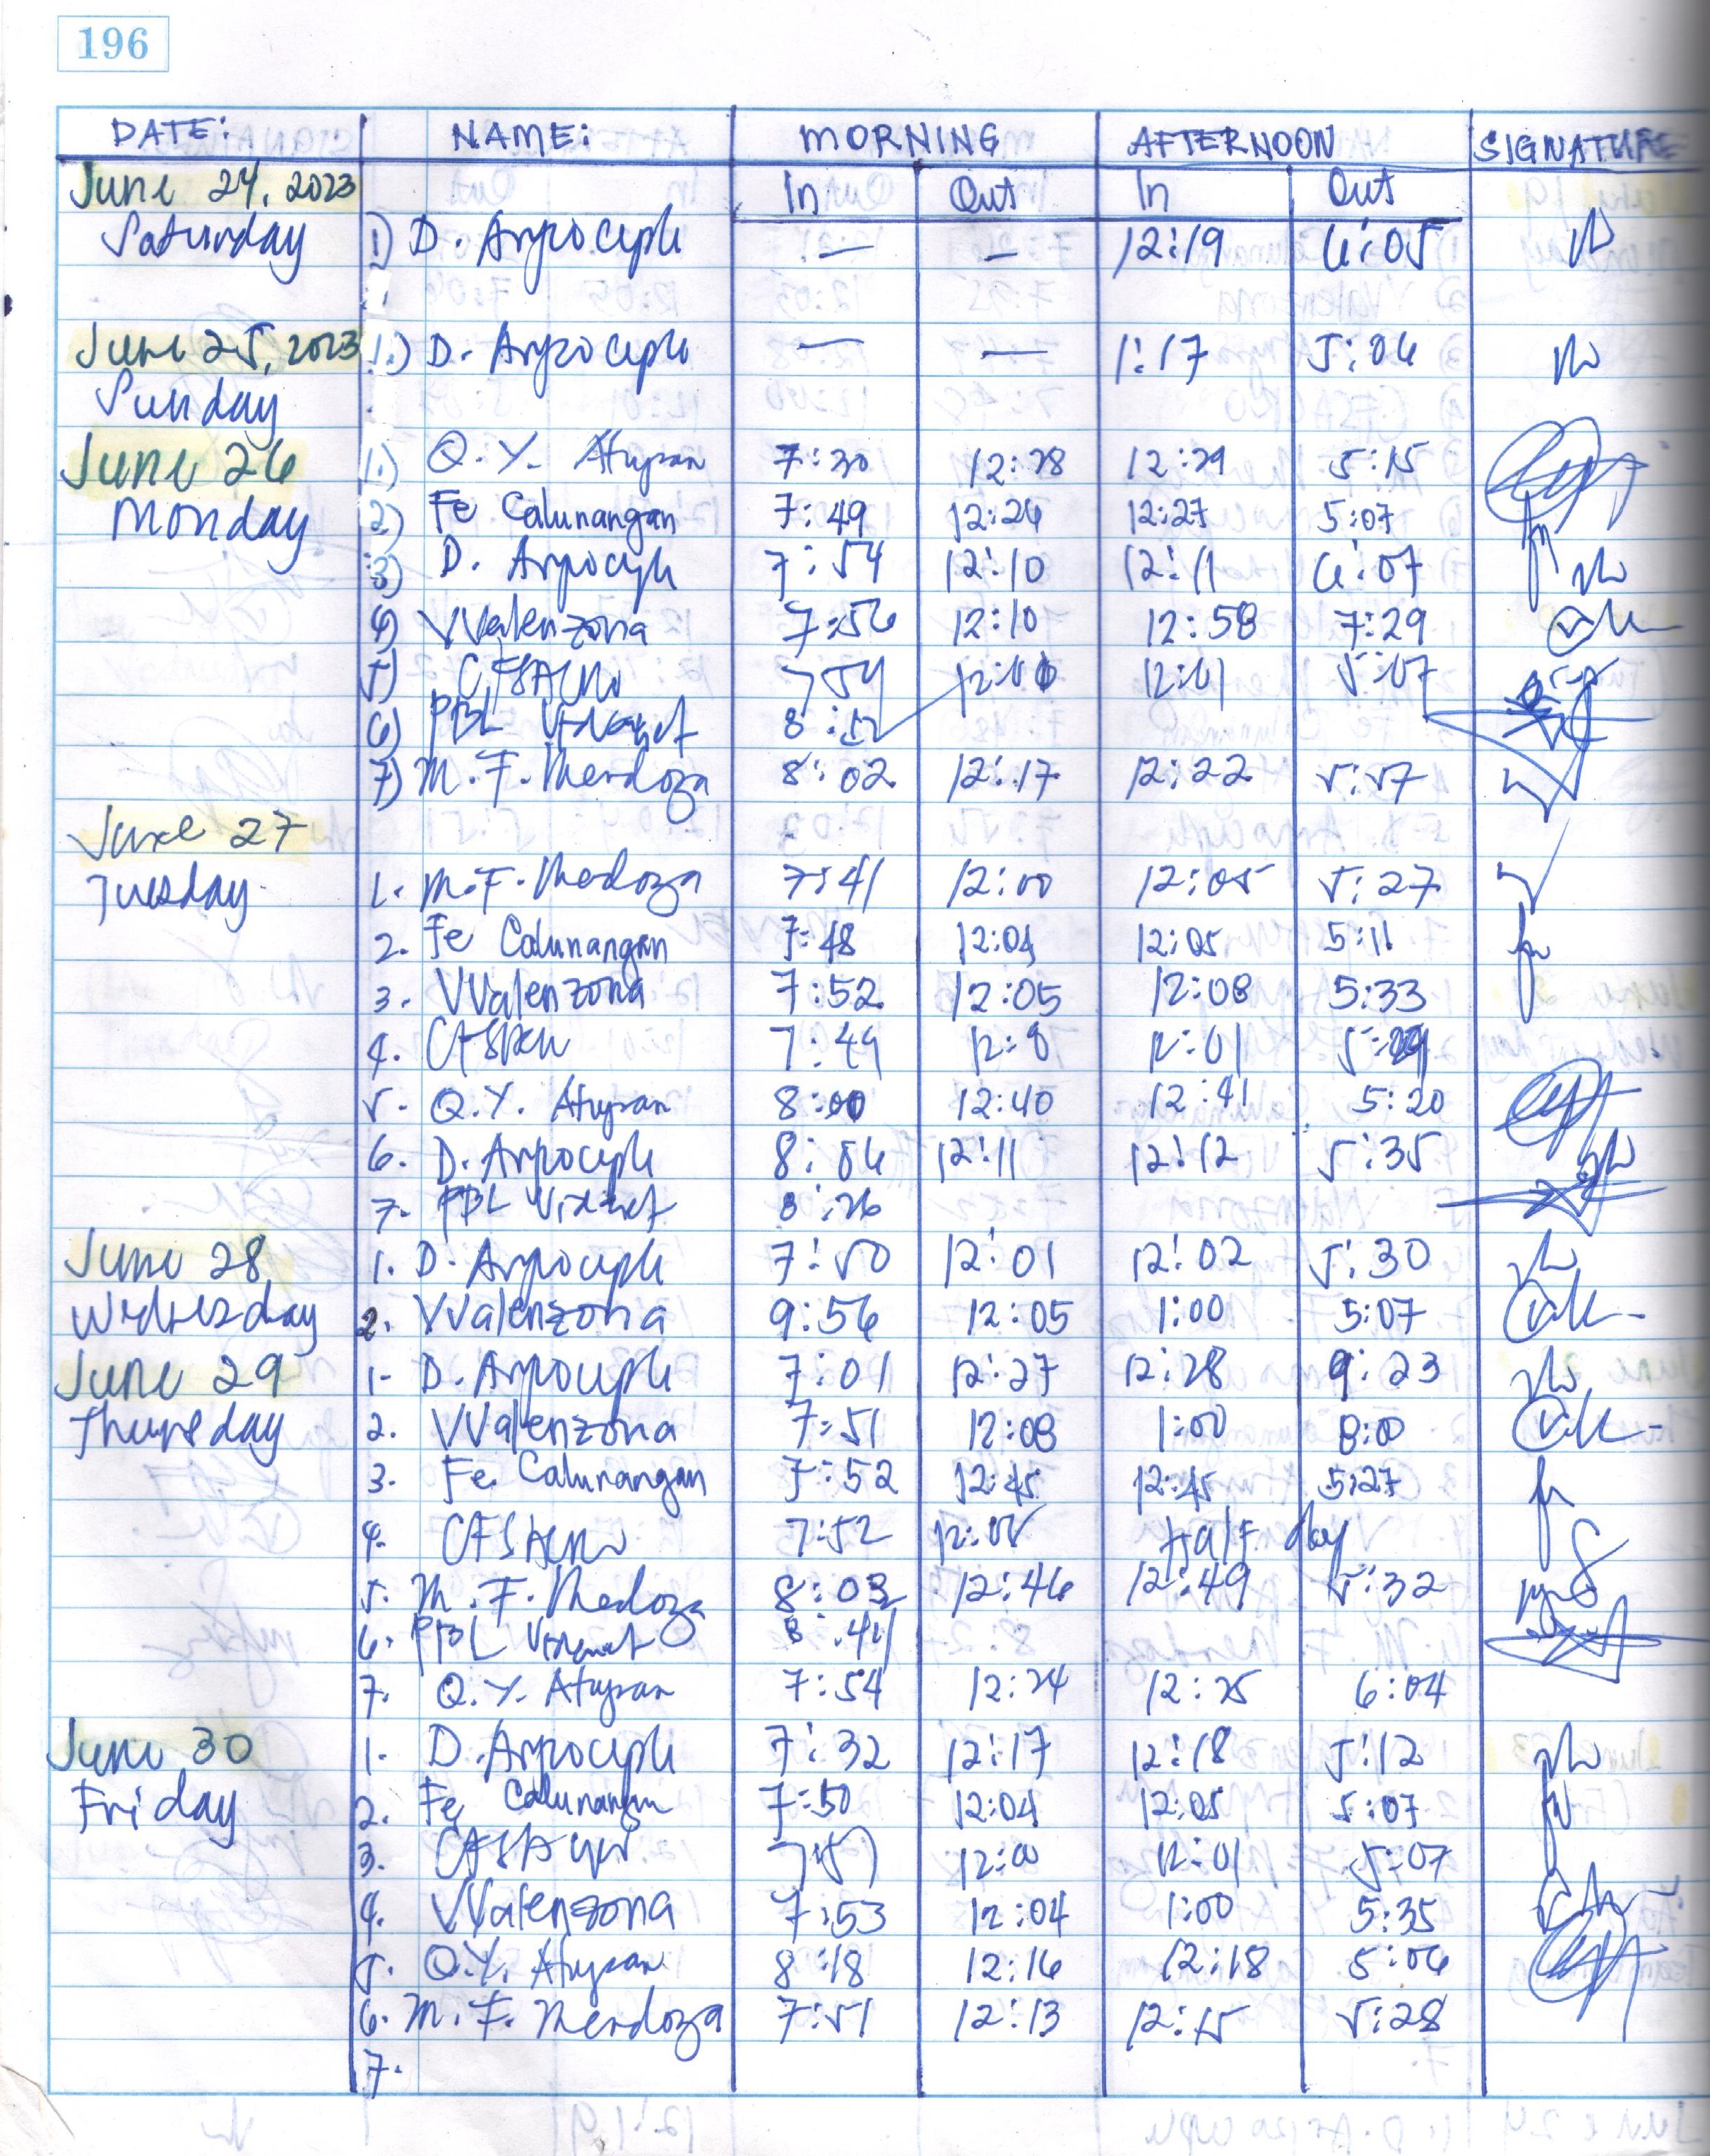 196
DATE: NAME: MORNING AFTERNOON SIGNATURE
June 24, 2023 In Out In Out
Saturday 1) D. Arpoceple — — 12:19 6:05
June 25, 2023 1.) D. Arpoceple — — 1:17 5:06
Sunday
June 26 1.) Q.Y. Atupan 7:30 12:28 12:29 5:15
Monday 2) Fe Calunangan 7:49 12:26 12:27 5:07
3) D. Arpoceple 7:54 12:10 12:11 6:07
4) VValenzona 7:56 12:10 12:58 7:29
5) 754 12:00 12:01 5:07
6) PBL 8:52
7) M.F. Mendoza 8:02 12:17 12:22 5:57
June 27
Tuesday 1. M.F. Medoza 7:41 12:00 12:05 5:27
2. Fe Calunangan 7:48 12:04 12:05 5:11
3. VValenzona 7:52 12:05 12:08 5:33
4. 7:49 12:01
5. Q.Y. Atupan 8:00 12:40 12:41 5:20
6. D. Arpoceple 8:06 12:11 12:12 5:35
7. PBL 8:26
June 28 1. D. Arpoceple 7:50 12:01 12:02 5:30
Wednesday 2. VValenzona 9:56 12:05 1:00 5:07
June 29 1- D. Arpoceple 7:01 12:27 12:28 9:23
Thursday 2. VValenzona 7:51 12:08 1:00 8:00
3. Fe Calunangan 7:52 12:45 12:45 5:27
4. 7:52 Half day
5. M.F. Medoza 8:03 12:46 12:49 5:32
6. PBL 8:41
7. Q.Y. Atupan 7:54 12:24 12:25 6:04
June 30 1. D. Arpoceple 7:32 12:17 12:18 5:12
Friday 2. Fe Calunangan 7:50 12:04 12:05 5:07
3. 12:00 12:01 5:07
4. VValenzona 7:53 12:04 1:00 5:35
5. Q.Y. Atupan 8:18 12:16 12:18 5:06
6. M.F. Mendoza 7:51 12:13 12:15 5:28
7.